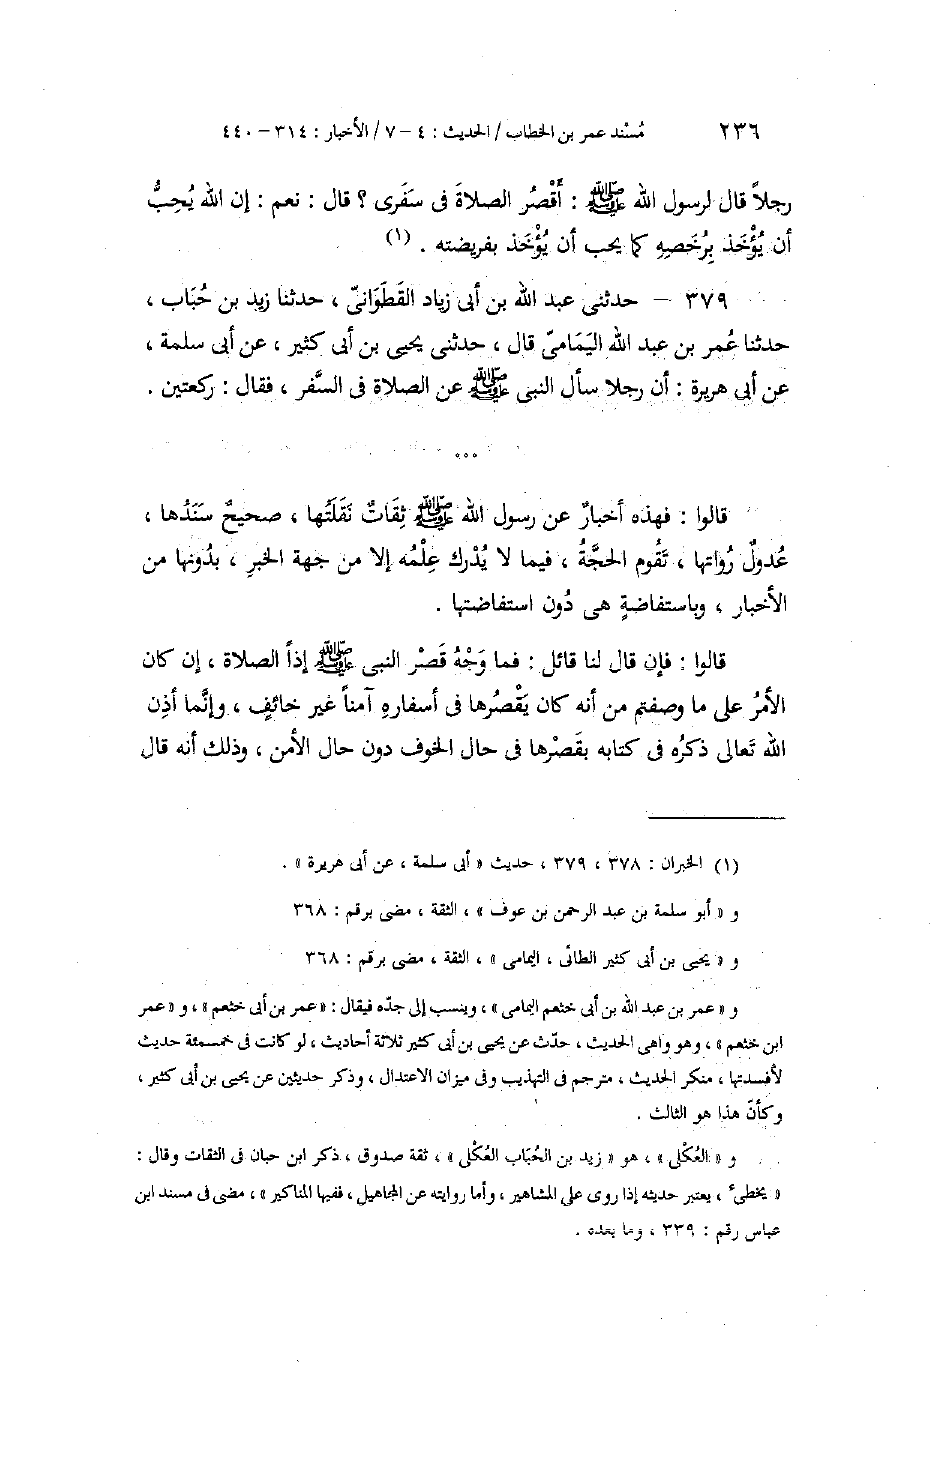 ٢٣٦ مُسْند عمر بن الخطاب / الحديث : ٤ - ٧ / الأخبار : ٣١٤ - ٤٤٠
رجلاً قال لرسول الله ﷺ : أَقْصُرُ الصلاةَ فى سَفَرى ؟ قال : نعم : إن الله يُحِبُّ
أن يُؤْخَذ بِرُخَصِهِ كما يحب أن يُؤْخَذ بفريضته . (١)
٣٧٩ – حدثنى عبد الله بن أبى زياد القَطَوَانىّ ، حدثنا زيد بن حُبَاب ،
حدثنا عُمر بن عبد الله اليَمَامىّ قال ، حدثنى يحيى بن أبى كثير ، عن أبى سلمة ،
عن أبي هريرة : أن رجلا سأل النبى ﷺ عن الصلاة فى السَّفر ، فقال : ركعتين .
°°°
قالوا : فهذه أخبارٌ عن رسول الله ﷺ ثِقَاتٌ نَقَلَتُها ، صحيحٌ سَنَدُها ،
عُدولٌ رُواتها ، تَقُوم الحجَّةُ ، فيما لا يُدْرك عِلْمُه إلا من جهة الخبرِ ، بدُونها من
الأخبار ، وباستفاضةٍ هى دُون استفاضتها .
قالوا : فإن قال لنا قائل : فما وَجْهُ قَصْر النبى ﷺ إذاً الصلاة ، إن كان
الأمرُ على ما وصفتم من أنه كان يَقْصُرها فى أسفاره آمناً غير خائفٍ ، وإنَّما أذِن
الله تَعالى ذكرُه فى كتابه بقَصْرها فى حال الخوف دون حال الأمن ، وذلك أنه قال
(١) الخبران : ٣٧٨ ، ٣٧٩ ، حديث « أبى سلمة ، عن أبى هريرة » .
و « أبو سلمة بن عبد الرحمن بن عوف » ، الثقة ، مضى برقم : ٣٦٨
و « يحيى بن أبى كثير الطائى ، اليمامى » ، الثقة ، مضى برقم : ٣٦٨
و « عمر بن عبد الله بن أبى خثعم اليمامى » ، وينسب إلى جدّه فيقال : « عمر بن أبى خثعم » ، و « عمر
ابن خثعم » ، وهو واهى الحديث ، حدّث عن يحيى بن أبى كثير ثلاثة أحاديث ، لو كانت فى خمسمئة حديث
لأفسدتها ، منكر الحديث ، مترجم فى التهذيب وفى ميزان الاعتدال ، وذكر حديثين عن يحيى بن أبى كثير ،
وكأنّ هذا هو الثالث .
و « العُكْلى » ، هو « زيد بن الحُبَاب العُكْلى » ، ثقة صدوق ، ذكر ابن حبان فى الثقات وقال :
« يخطىء ، يعتبر حديثه إذا روى على المشاهير ، وأما روايته عن المجاهيل ، ففيها المناكير » ، مضى فى مسند ابن
عباس رقم : ٣٣٩ ، وما بعده .